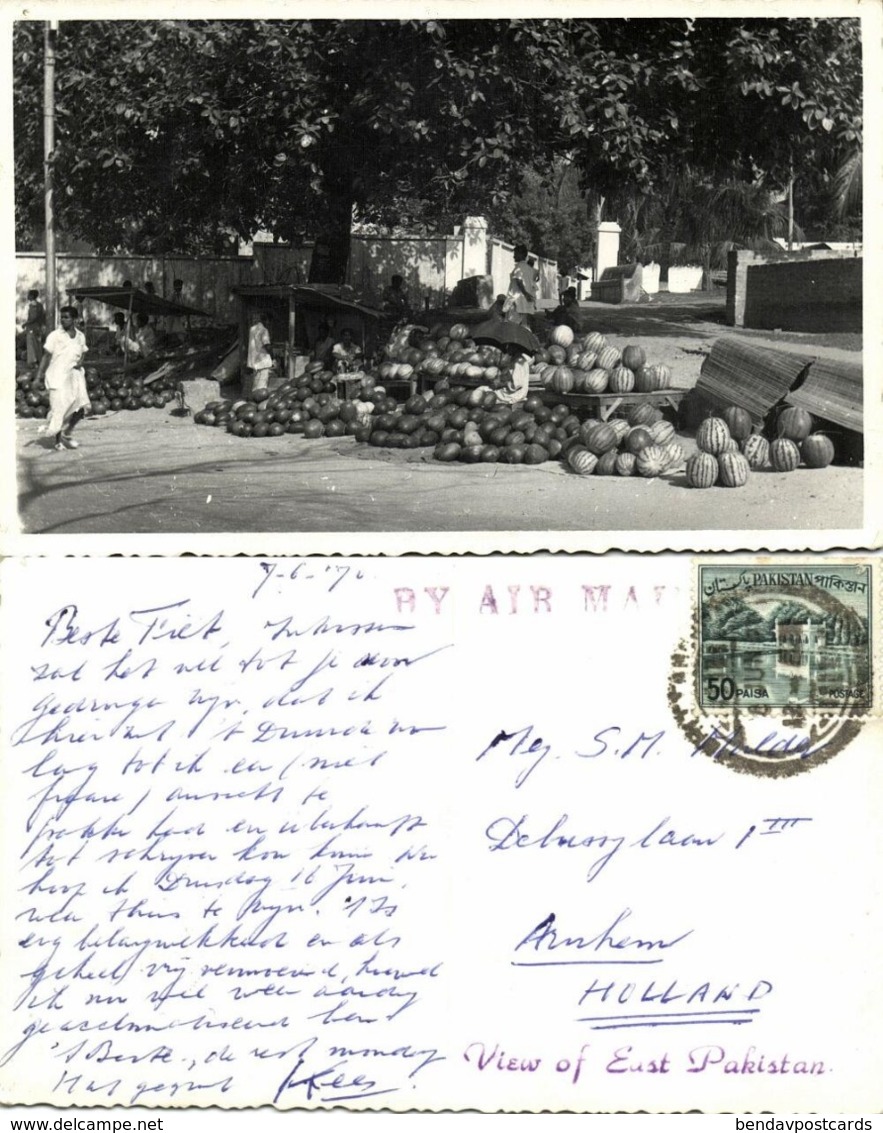 7-6-'70
BY AIR MAIL
پاکستان PAKISTAN পাকিস্তান
50 PAISA POSTAGE
Beste Fiet, Intussen
zal het wel tot je door
gedrongen zijn, dat ik
hier
lang tot ik er (niet
te
had en überhaupt
tot schrijven kon komen. Nu
hoop ik Dinsdag 16 Juni
weer thuis te zijn. 't Is
erg belangwekkend en als
geheel vrij vermoeiend, hoewel
ik nu wel weer aardig
geacclimatiseerd ben.
't Beste, de rest mondeling
Hart. gegroet Kees.
Mej. S. M. Mulder
Debussylaan 1 III
Arnhem
HOLLAND
View of East Pakistan.
delcampe.net
bendavpostcards